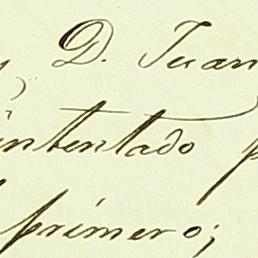 y D. Juan
intentado p
primero;